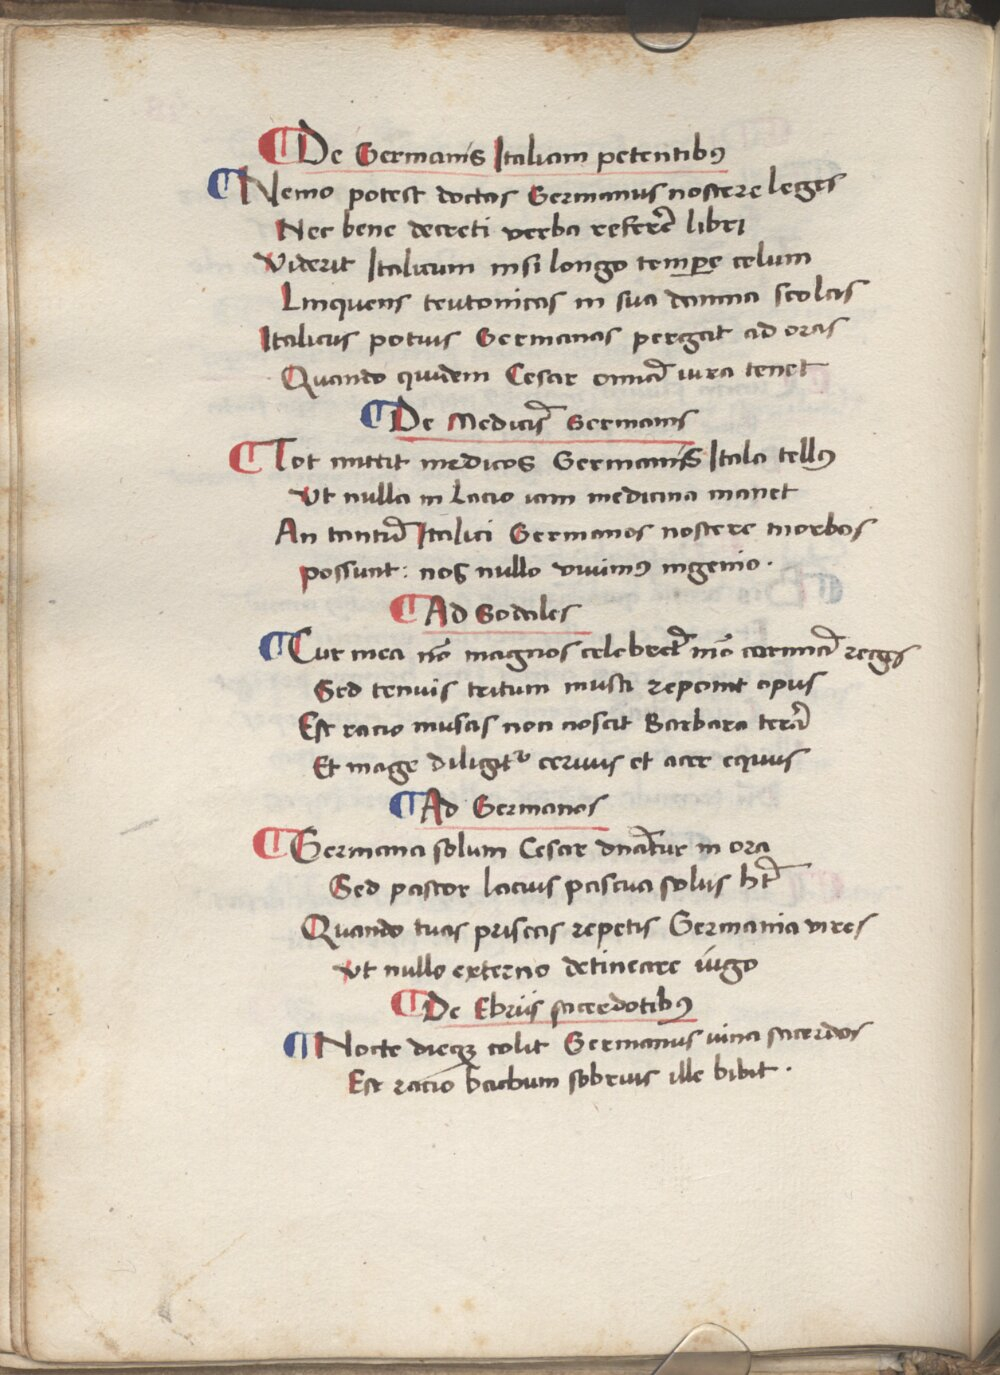 De Germanis Italiam petentibꝰ
Nemo potest doctas Germanus noscere leges
Nec bene decreti verba referr̄ libri
Viderit Italicum nisi longo tempore celum
Linquens teutonicas in sua damna scolas
Italicus potuis Germanas pergat ad oras
Quando quidem Cesar omnia iura tenet
De Medicis Germanis
Tot mittit medicos Germanis Itala tellꝰ
Ut nulla in Lacio iam medicina manet
An tantū Italici Germanos noscere morbos
possunt: nos nullo viuimꝰ ingenio.
Ad Sodales
Cur mea nō magnos celebret carmina reges
Sed tenuis tritum musa reponit opus
Est racio musas non noscit Barbara terra
Et mage diligitr ceruus et acer equus
Ad Germanos
Germana solum Cesar dn̄atur in ora
Sed pastor lacius pascua solus ht̄
Quando tuas priscas repetis Germania vires
Ut nullo externo detineare iugo
De Ebriis sacerdotibꝰ
Nocte dieqꝫ colit Germanus uina sacerdos
Est racio bachum sobrius ille bibit.